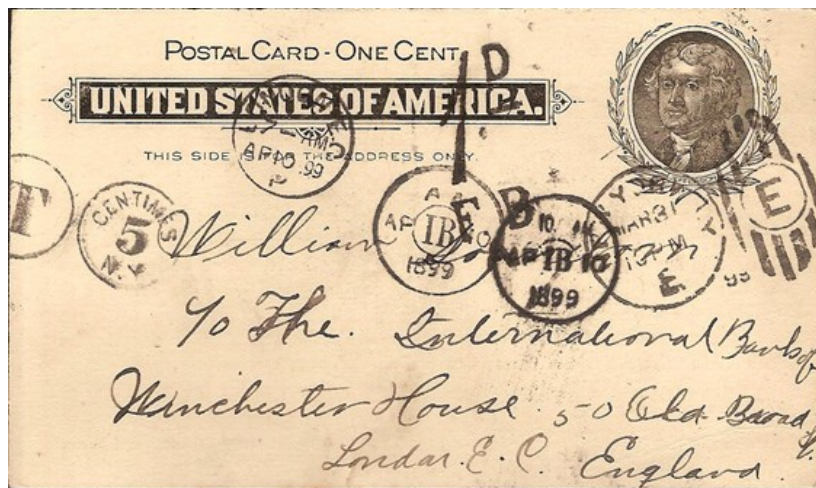 POSTAL CARD - ONE CENT.
UNITED STATES OF AMERICA.
THIS SIDE IS THE ADDRESS ONLY.
1D.
AM
AP 10 99
T
CENTIMES
5
N.Y.
A
AP IB 10
1899
F.B.
10.
AP IB 10
1899
N.Y.
MAR 31
PM
E
99
E
William
% The International Bank of
Winchester House 50 Old Broad St.
London. E. C. England.